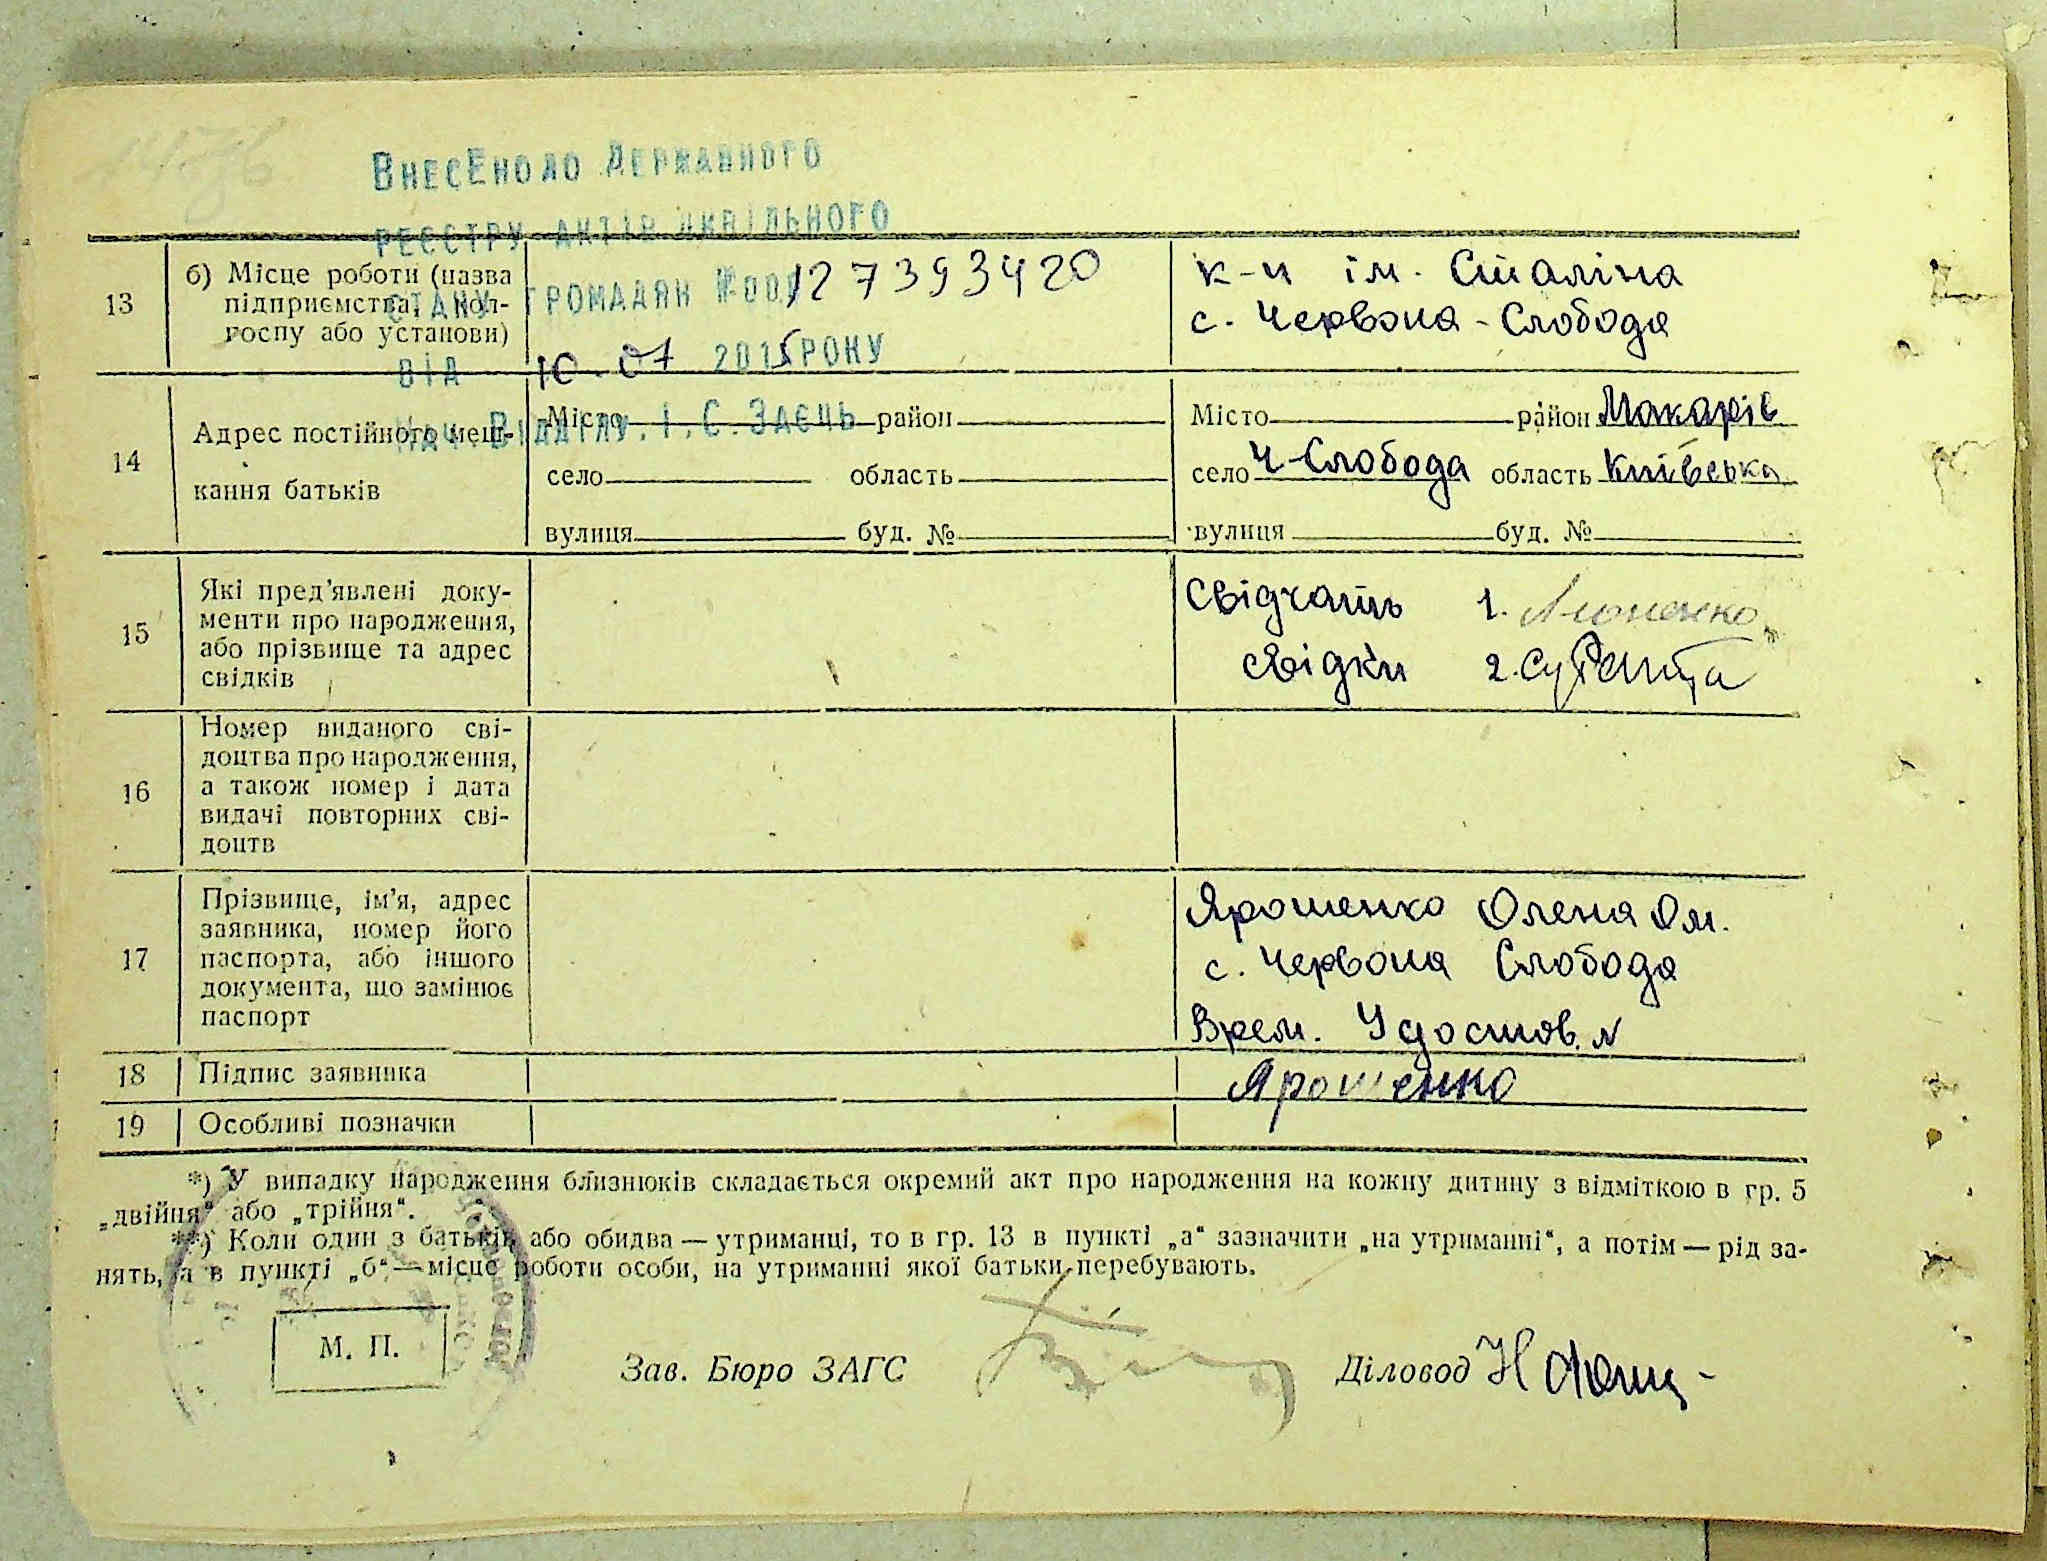 ВНЕСЕНО ДО ДЕРЖАВНОГО
РЕЄСТРУ АКТІВ ЦИВІЛЬНОГО
СТАНУ ГРОМАДЯН №00 127393420
ВІД 10.07 2015 РОКУ
НАЧ. ВІДДІЛУ. І. С. ЗАЄЦЬ
13
б) Місце роботи (назва
підприємства, кол-
госпу або установи)
к-п ім. Сталіна
с. Червона-Слобода
14
Адрес постійного меш-
кання батьків
Місто район
село область
вулиця буд. №
Місто район Макарів
село Ч-Слобода область Київська
вулиця буд. №
15
Які пред'явлені доку-
менти про народження,
або прізвище та адрес
свідків
Свідчать 1.
свідки 2.
16
Номер виданого сві-
доцтва про народження,
а також номер і дата
видачі повторних сві-
доцтв
17
Прізвище, ім'я, адрес
заявника, номер його
паспорта, або іншого
документа, що замінює
паспорт
Ярошенко Олена Ом.
с. Червона Слобода
Врем. Удостов. №
18
Підпис заявника
Ярошенко
19
Особливі позначки
*) У випадку народження близнюків складається окремий акт про народження на кожну дитину з відміткою в гр. 5
„двійня“ або „трійня“.
**) Коли один з батьків або обидва — утриманці, то в гр. 13 в пункті „а“ зазначити „на утриманні“, а потім — рід за-
нять, а в пункті „б“ — місце роботи особи, на утриманні якої батьки перебувають.
М. П.
Зав. Бюро ЗАГС
Діловод